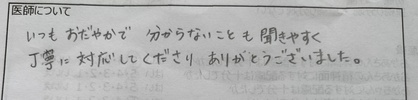 医師について
いつも おだやかで 分からないことも 聞きやすく
丁寧に 対応してくださり ありがとうございました。